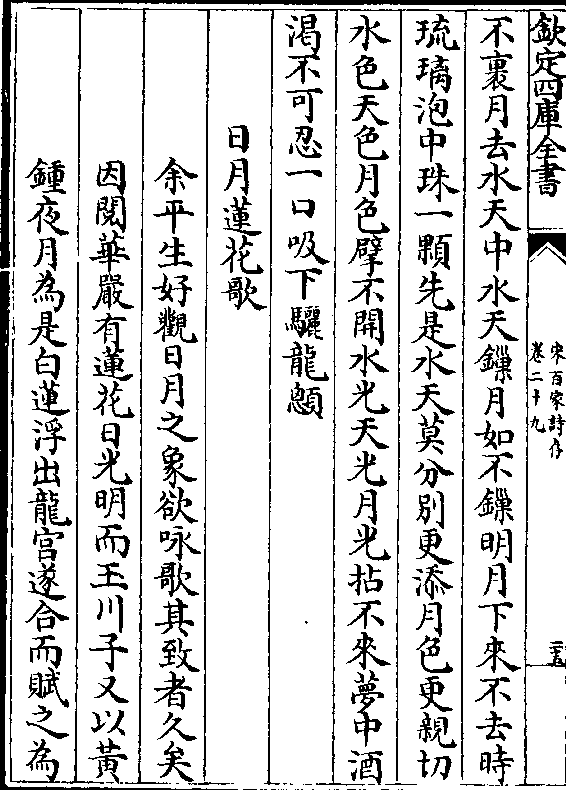 欽定四庫全書
宋百家詩存
卷二十九
三五
不裏月去水天中水天鏁月如不鏁明月下來不去時
琉璃泡中珠一顆先是水天莫分別更添月色更親切
水色天色月色擘不開水光天光月光拈不來夢中酒
渴不可忍一口吸下驪龍顋
日月蓮花歌
余平生好觀日月之象欲咏歌其致者久矣
因閱華嚴有蓮花日光明而玉川子又以黃
鍾夜月為是白蓮浮出龍宮遂合而賦之為